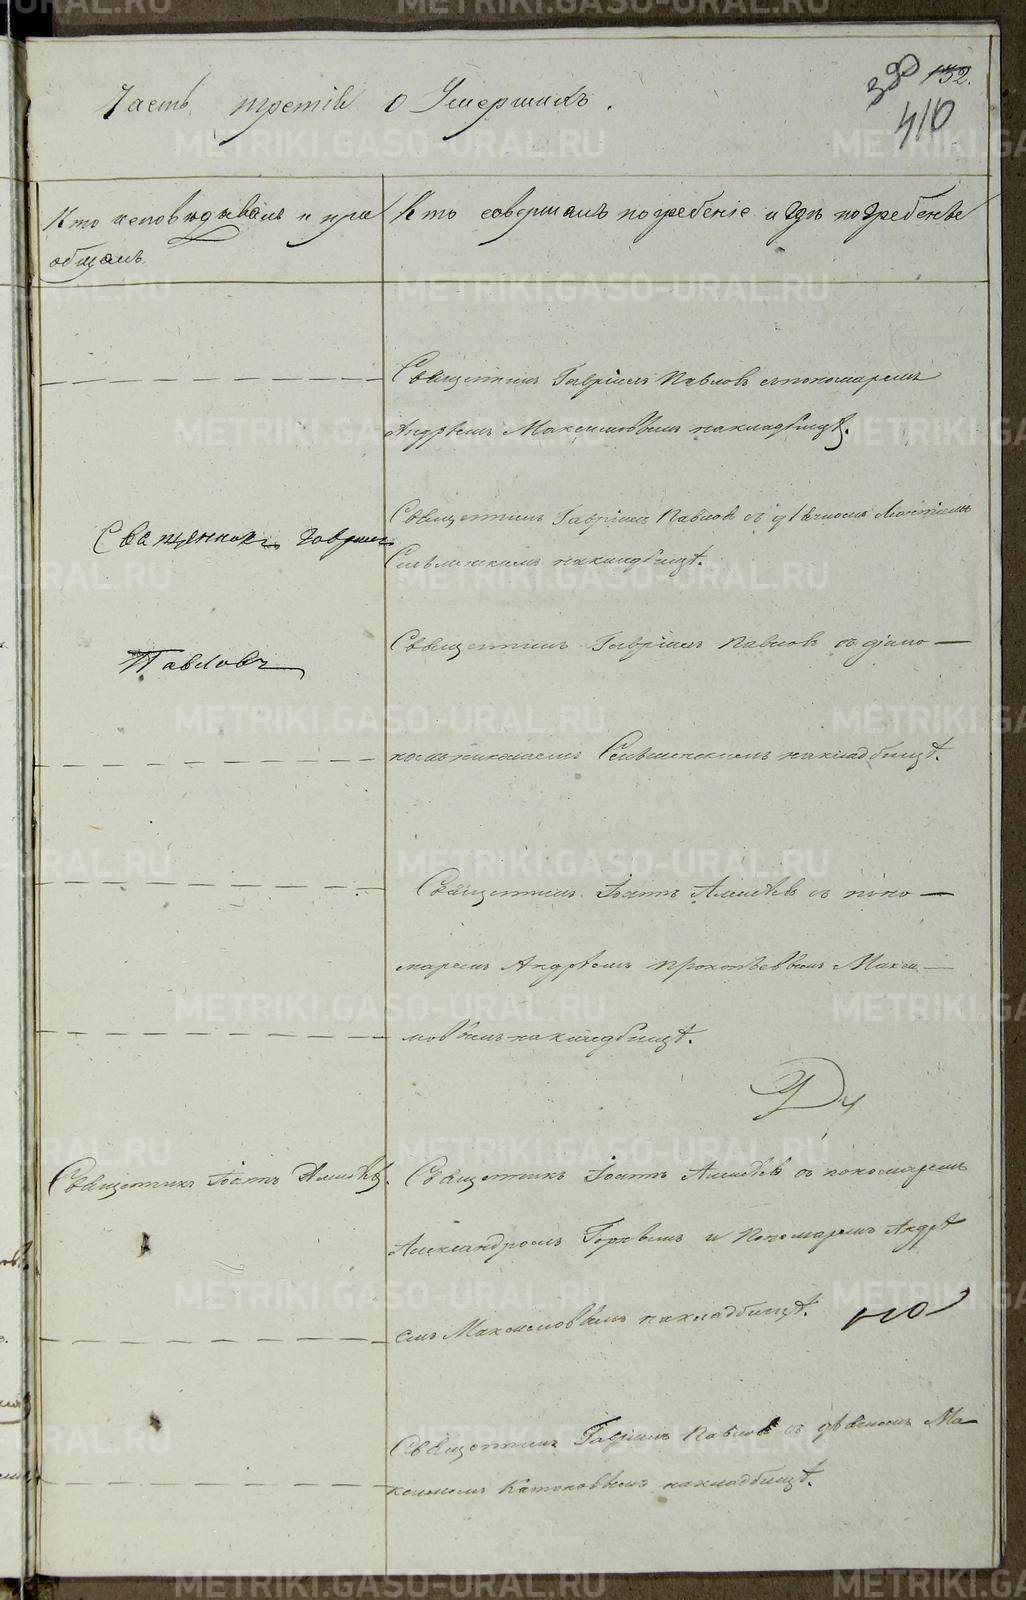 Часть третія о Умершихъ.
390 132.
410
Кто исповѣдывалъ и прі
общалъ
Кто совершалъ погребеніе и гдѣ погребены
Священникъ Гавріилъ Павловъ съ пономаремъ
Андрѣемъ Максимовымъ на кладбищѣ.
Священникъ Гавріилъ
Павловъ
Священникъ Гавріилъ Павловъ съ дьячкомъ
на кладбищѣ.
Священникъ Гавріилъ Павловъ съ діако—
номъ Николаемъ на кладбищѣ.
Священникъ Іоаннъ съ поно—
маремъ Андрѣемъ Прокопьевымъ Макси—
мовымъ на кладбищѣ.
Священникъ Іоаннъ
Священникъ Іоаннъ съ пономаремъ
Александромъ и Пономаремъ Андрѣ
емъ Максимовымъ на кладбищѣ.
Священникъ Гавріилъ Павловъ съ Ма
ксимомъ на кладбищѣ.
METRIKI.GASO-URAL.RU